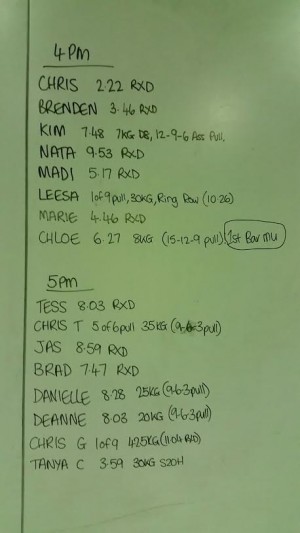 4PM
CHRIS 2.22 RXD
BRENDEN 3.46 RXD
KIM 7.48 7KG DB, 12-9-6 Ass Pull.
NATA 9.53 RXD
MADI 5.17 RXD
LEESA 1 of 9 pull, 30KG, Ring Row (10.26)
MARIE 4.46 RXD
CHLOE 6.27 8KG (15-12-9 pull) 1st Bar MU
5pm
TESS 8.03 RXD
CHRIS T 5 of 6 pull 35KG (9-6-3 pull)
JAS 8.59 RXD
BRAD 7.47 RXD
DANIELLE 8.28 25KG (9-6-3 pull)
DEANNE 8.03 20KG (9-6-3 pull)
CHRIS G 1 of 9 42.5KG (11.04 RXD)
TANYA C 3.59 30KG S2OH